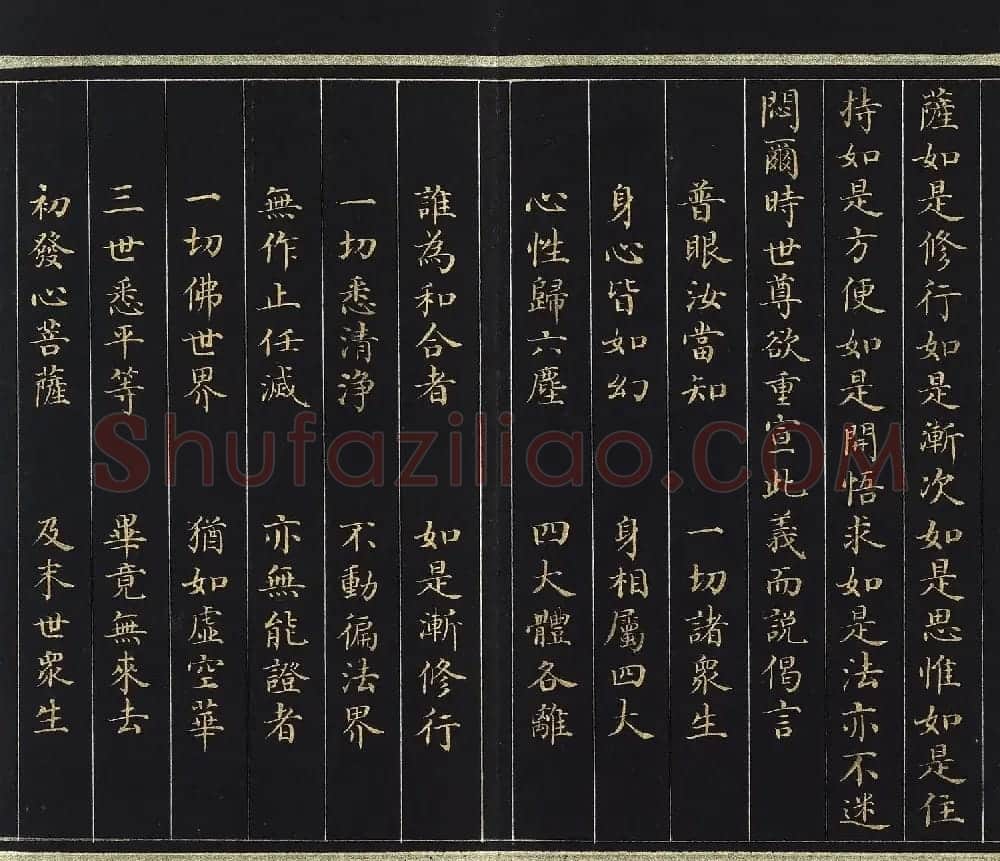 薩如是修行如是漸次如是思惟如是住
持如是方便如是開悟求如是法亦不迷
悶爾時世尊欲重宣此義而説偈言
普眼汝當知 一切諸衆生
身心皆如幻 身相屬四大
心性歸六塵 四大體各離
誰為和合者 如是漸修行
一切悉清浄 不動徧法界
無作止任滅 亦無能證者
一切佛世界 猶如虛空華
三世悉平等 畢竟無來去
初發心菩薩 及末世衆生
Shufaziliao.COM